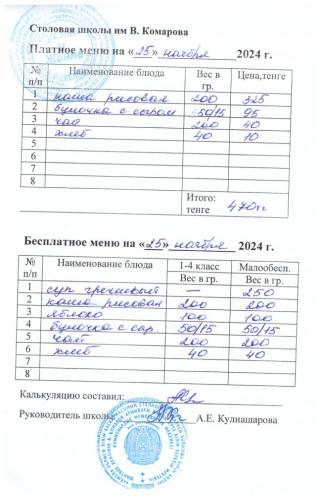 Столовая школы им В. Комарова
Платное меню на «25» ноября 2024 г.
№ п/п Наименование блюда Вес в гр. Цена,тенге
1 каша рисовая 200 325
2 булочка с сыром 50/15 95
3 чай 200 40
4 хлеб 40 10
5
6
7
8
Итого: тенге 470тг
Бесплатное меню на «25» ноября 2024 г.
№ п/п Наименование блюда 1-4 класс Малообесп.
Вес в гр. Вес в гр.
1 суп гречневый — 250
2 каша рисовая 200 200
3 яблоко 100 100
4 булочка с сыр. 50/15 50/15
5 чай 200 200
6 хлеб 40 40
7
8
Калькуляцию составил:
Руководитель школы: А.Е. Кулнашарова